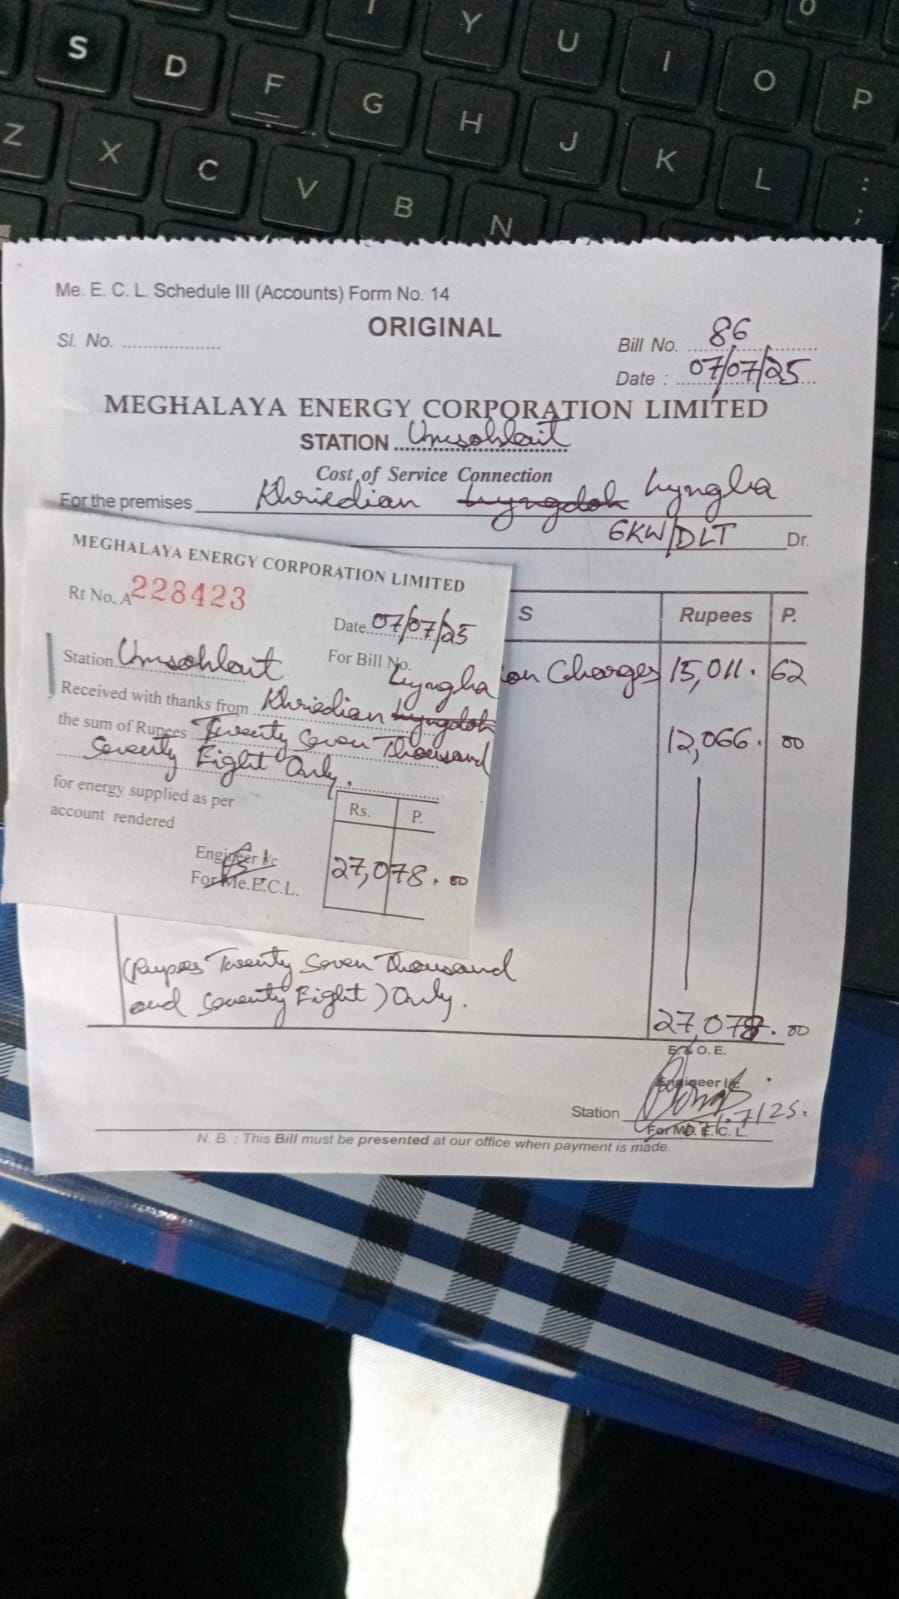 S D F G H J K L Y U I O P
Z X C V B N
Me. E. C. L. Schedule III (Accounts) Form No. 14
ORIGINAL
Sl. No.
Bill No. 86
Date : 07/07/25
MEGHALAYA ENERGY CORPORATION LIMITED
STATION Umsohlait
Cost of Service Connection
For the premises Khriedian Lyngdoh Lyngkha
6KW/DLT Dr.
S Rupees P.
on Charges 15,011. 62
12,066. 00
(Rupees Twenty Seven Thousand
and Seventy Eight) Only.
27,078. 00
E. & O. E.
Engineer I/c
Station 7/25.
For Me. E. C. L.
N. B. : This Bill must be presented at our office when payment is made.
MEGHALAYA ENERGY CORPORATION LIMITED
Rt No. A 228423
Date 07/07/25
Station Umsohlait For Bill No.
Lyngkha
Received with thanks from Khriedian Lyngdoh
the sum of Rupees Twenty Seven Thousand
Seventy Eight Only.
for energy supplied as per
account rendered
Rs. P.
27,078. 00
Engineer I/c
For Me.E.C.L.